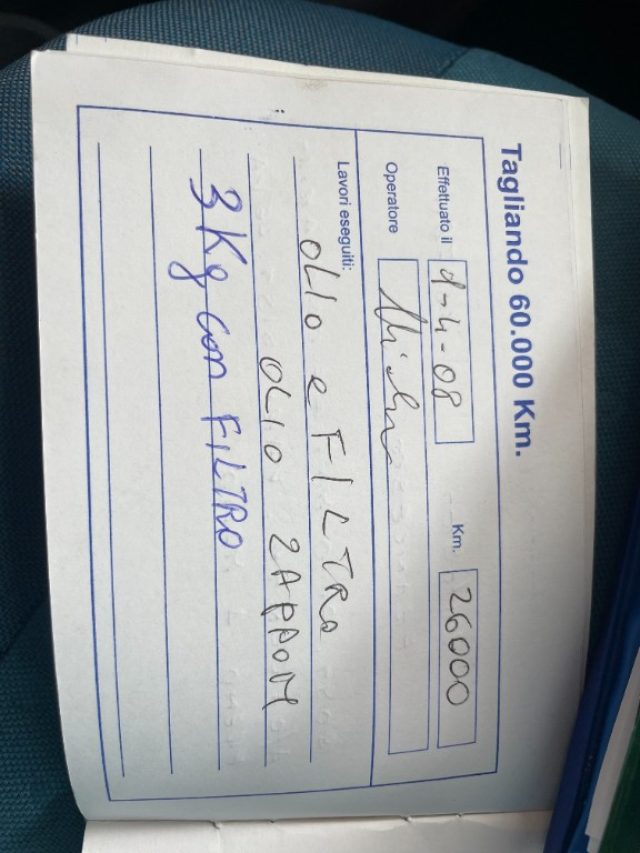 Tagliando 60.000 Km.
Effettuato il -4-08 Km. 26000
Operatore
Lavori eseguiti:
OLIO e FILTRO
OLIO
3 Kg con FILTRO